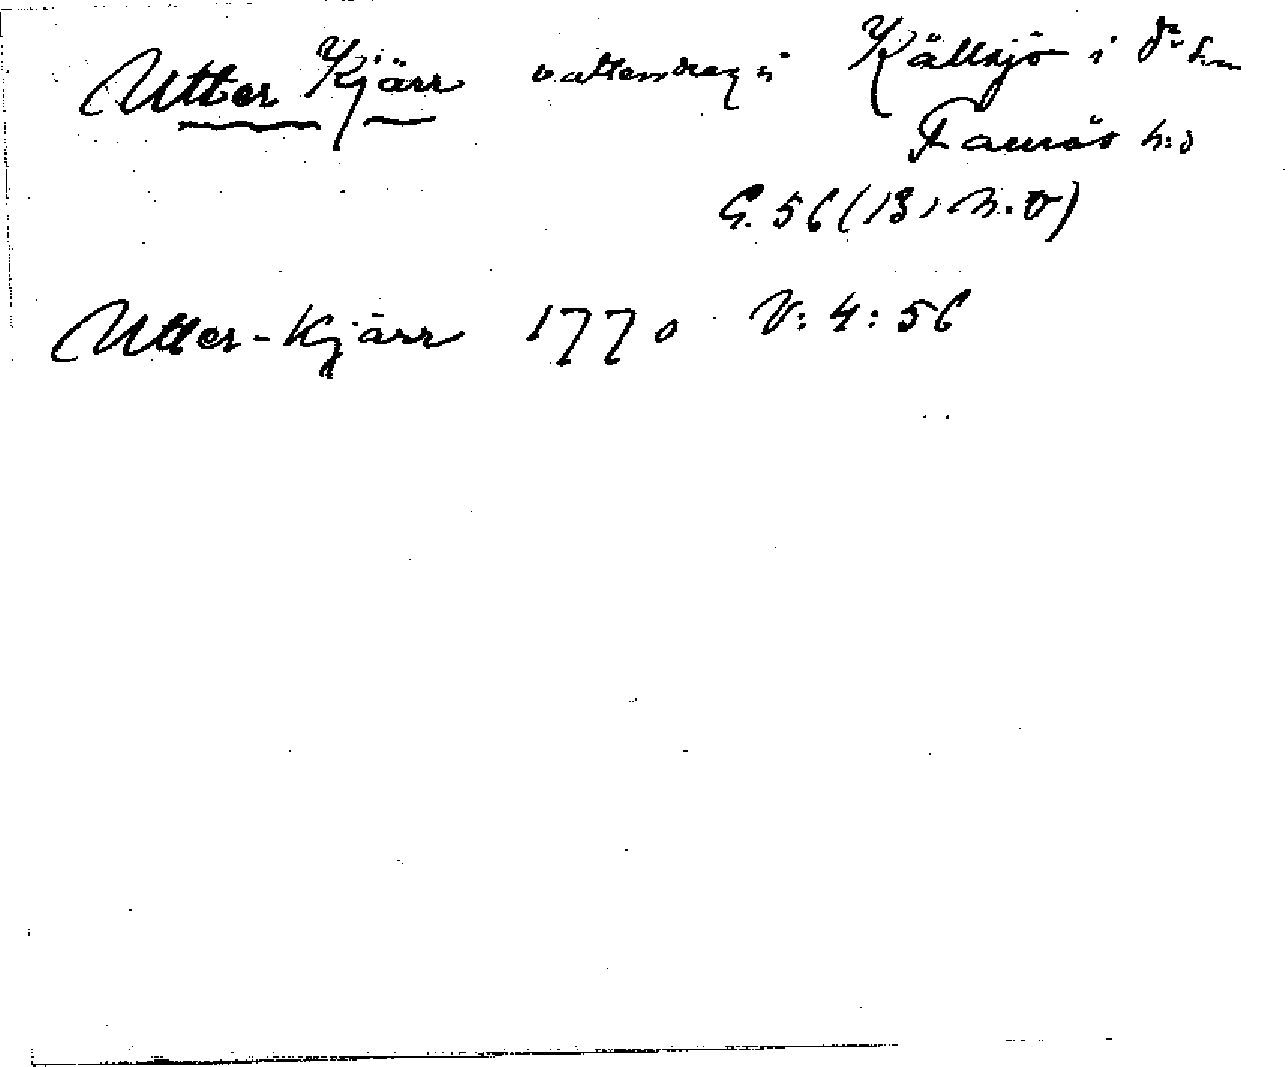 Utter Kjärr vattendrag i Källsjö i d:o sn
Faurås h:d
G. 56 (13, N.O)
Utter-Kjärr 1770 V: 4: 56